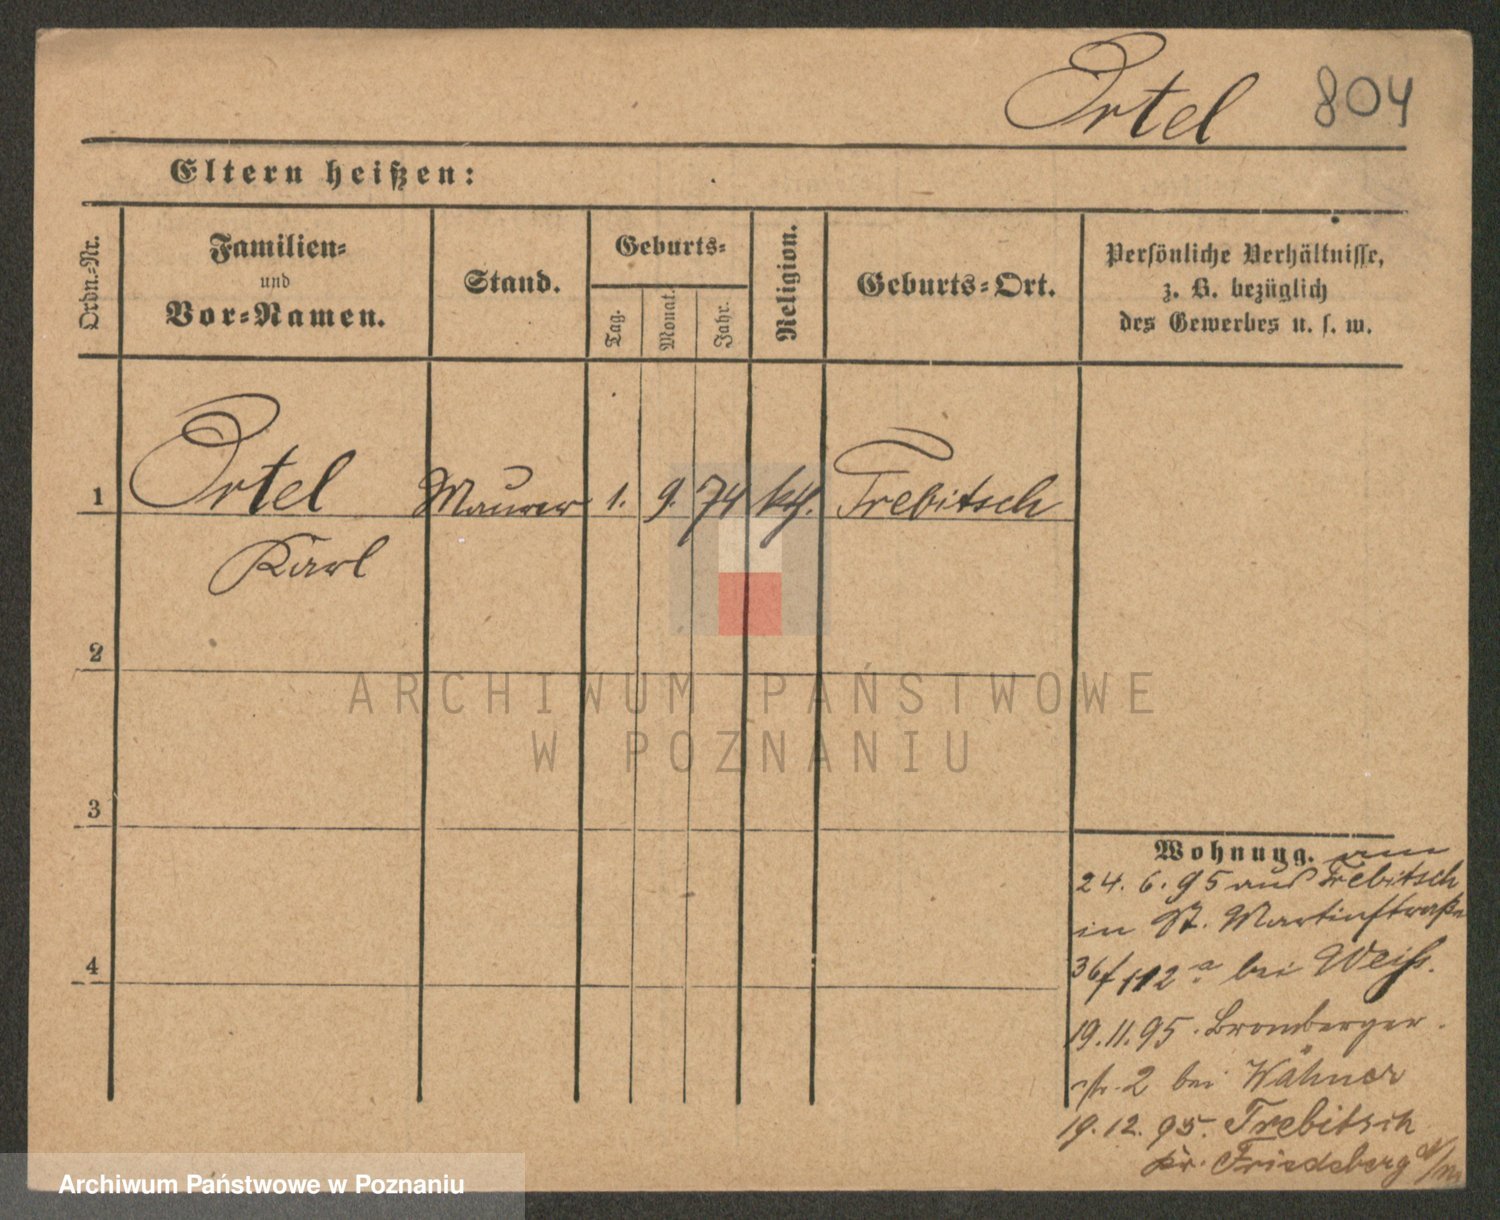 Ortel 804
Eltern heißen:
Ordn.=Nr.
Familien=
und
Vor=Namen.
Stand.
Geburts=
Tag.
Monat.
Jahr.
Religion.
Geburts=Ort.
Persönliche Verhältnisse,
z. B. bezüglich
des Gewerbes u. s. w.
1 Ortel Maurer 1. 9. 74 kth. Trebitsch
Karl
2
ARCHIWUM PAŃSTWOWE
W POZNANIU
3
4
Wohnung. am
24. 6. 95 aus Trebitsch
in St. Martinstraße
36/112 a bei Weiß.
19.11.95. Bromberger
str. 2 bei Wähner
19.12.95. Trebitsch
Kr. Friedeberg
Archiwum Państwowe w Poznaniu